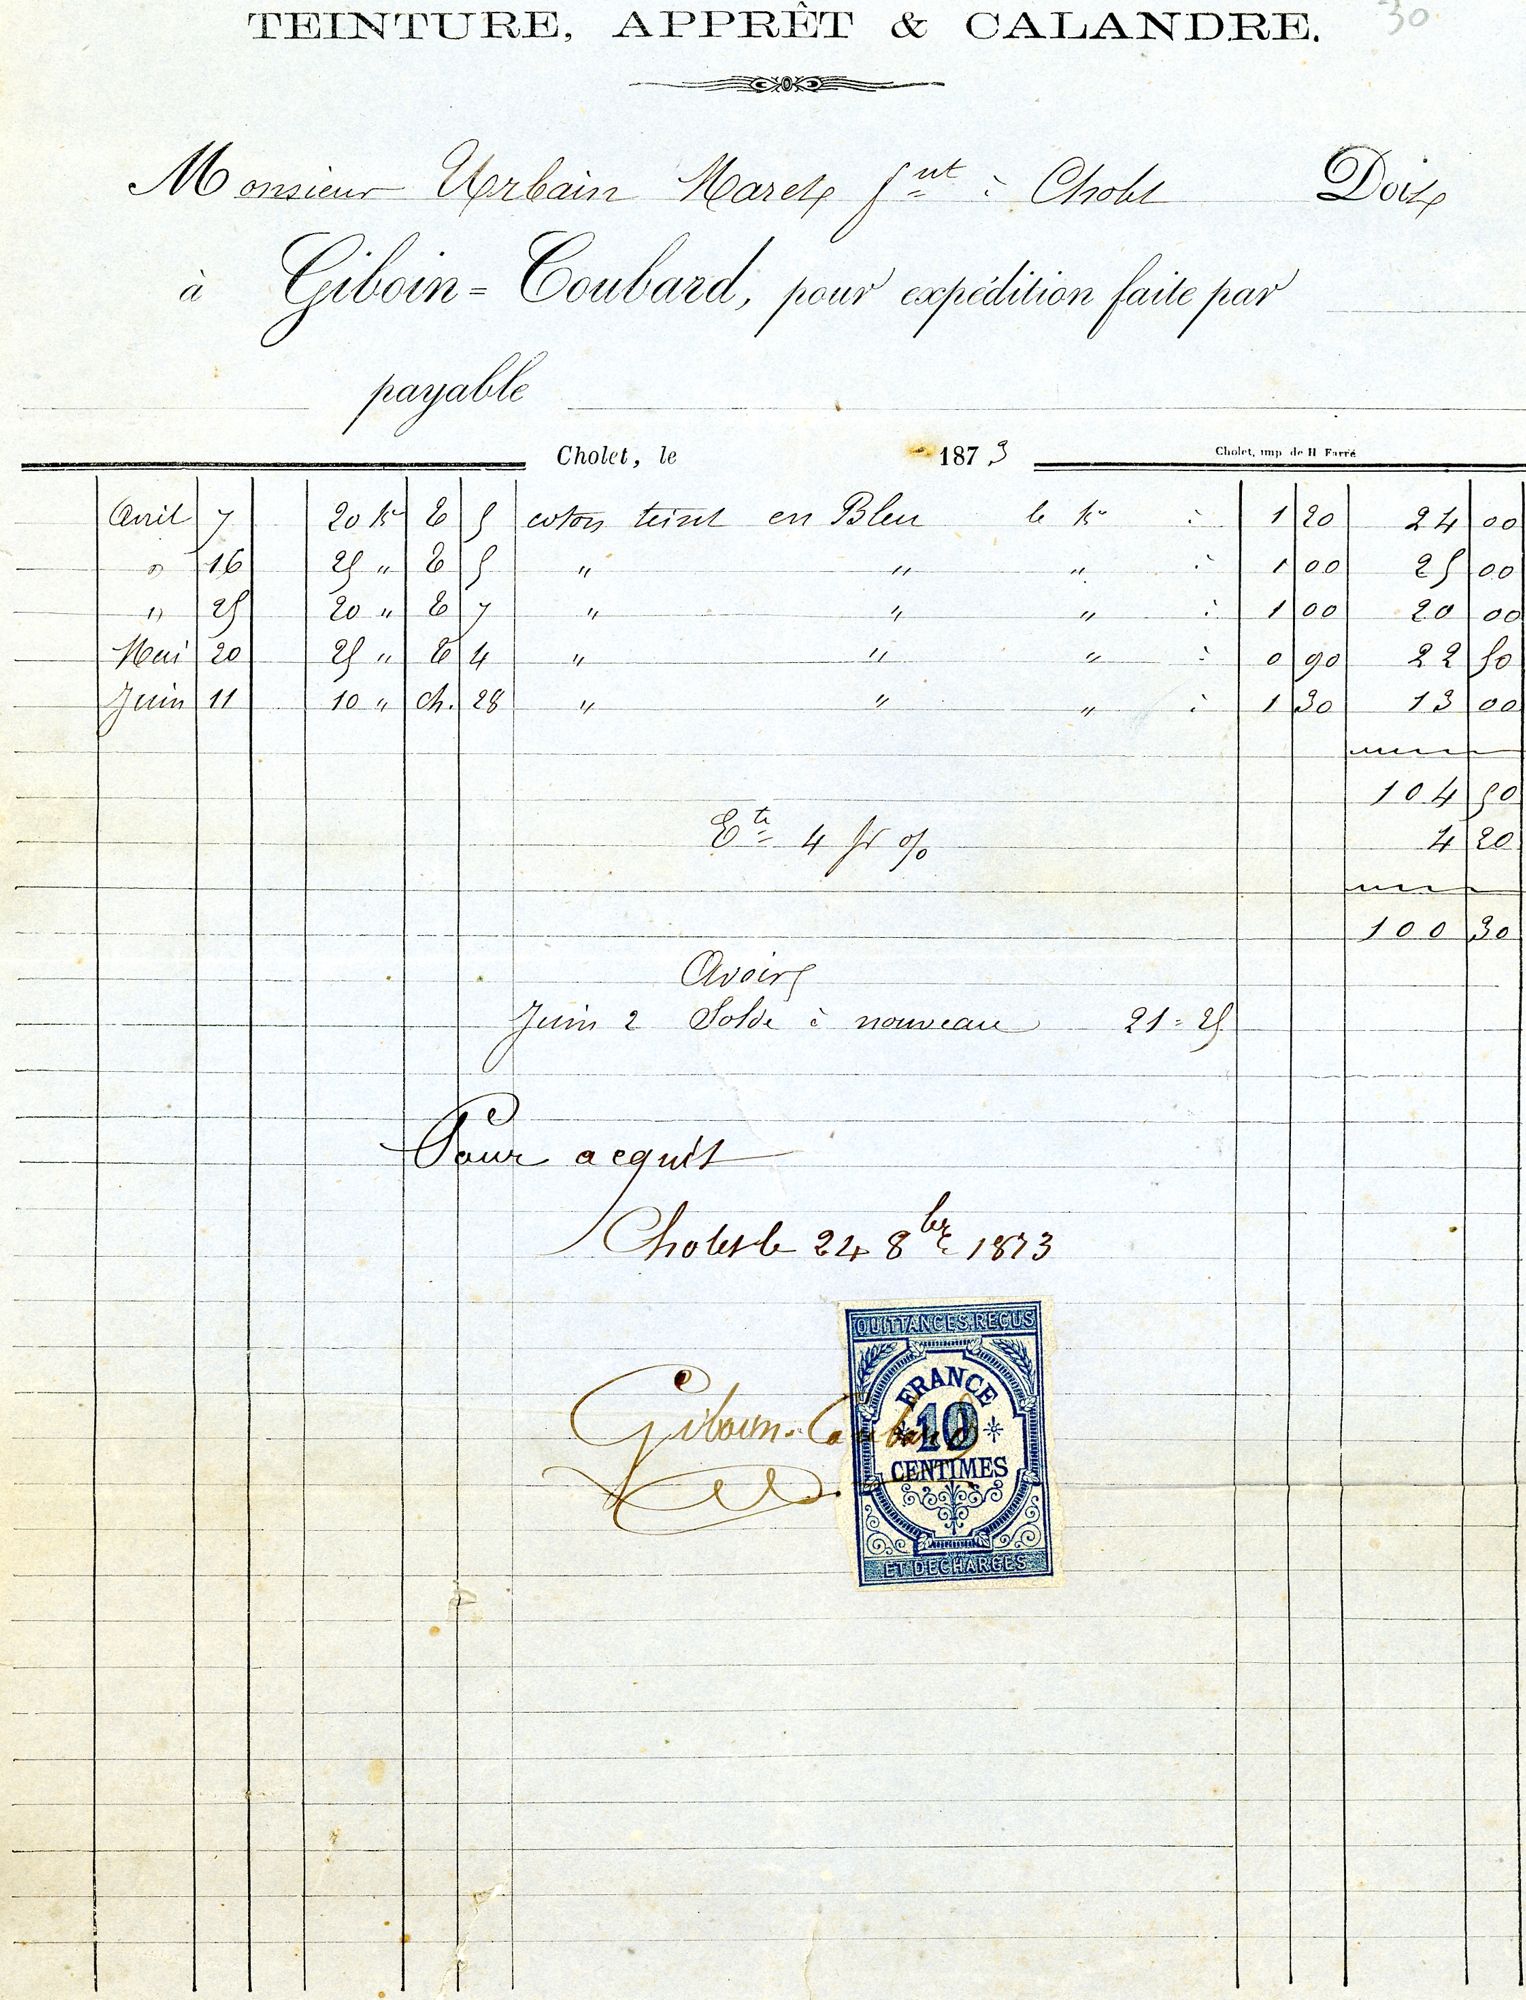 TEINTURE, APPRÊT & CALANDRE.
30
Monsieur Urbain Maret fnt à Cholet Doit
à Giboin=Coubard, pour expédition faite par
payable
Cholet, le 1873
Cholet, imp. de H Farré
Avril 7 20 K E 5 coton teint en Bleu le Ko à 1 20 24 00
" 16 25 " E 5 " " " à 1 00 25 00
" 25 20 " E 7 " " " à 1 00 20 00
Mai 20 25 " E 4 " " " à 0 90 22 50
Juin 11 10 " Ch. 28 " " " à 1 30 13 00
104 50
Ete 4 fr % 4 20
100 30
Avoirs
Juin 2 Solde à nouveau 21=25
Pour acquit
Cholet le 24 8bre 1873
QUITTANCES, REÇUS
FRANCE
10
CENTIMES
ET DÉCHARGES
Giboin-Coubard